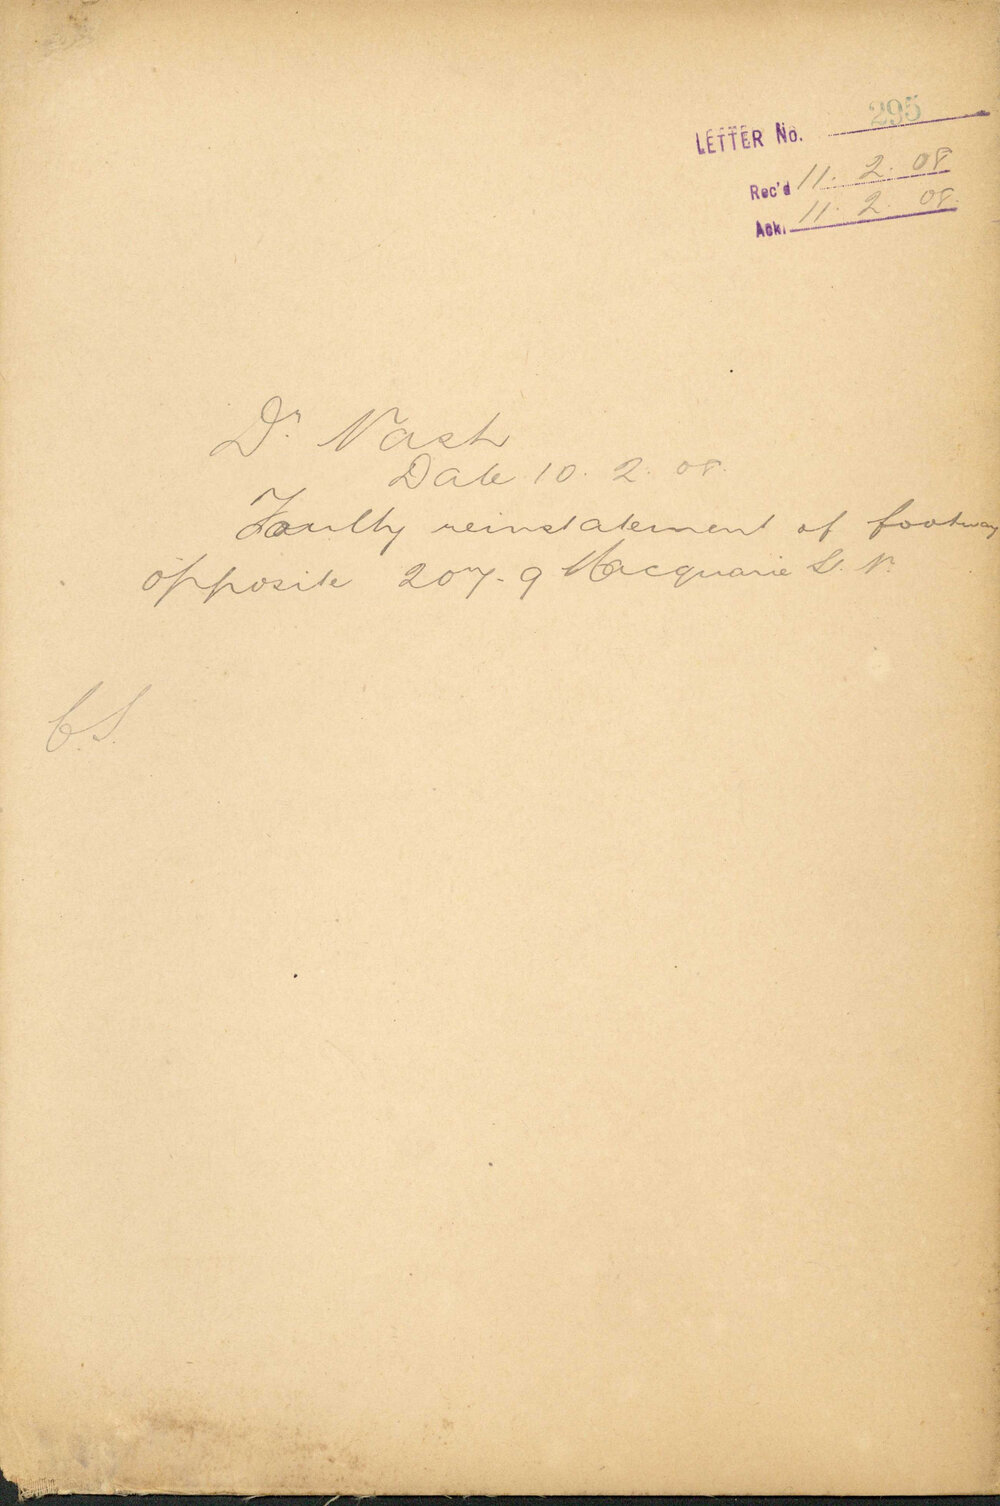 LETTER No. 295
Rec'd 11. 2. 08
Ack. 11. 2. 08.
Dr. Nash
Date 10. 2. 08.
Faulty reinstatement of footway
opposite 207-9 Macquarie St. N.
C.S.